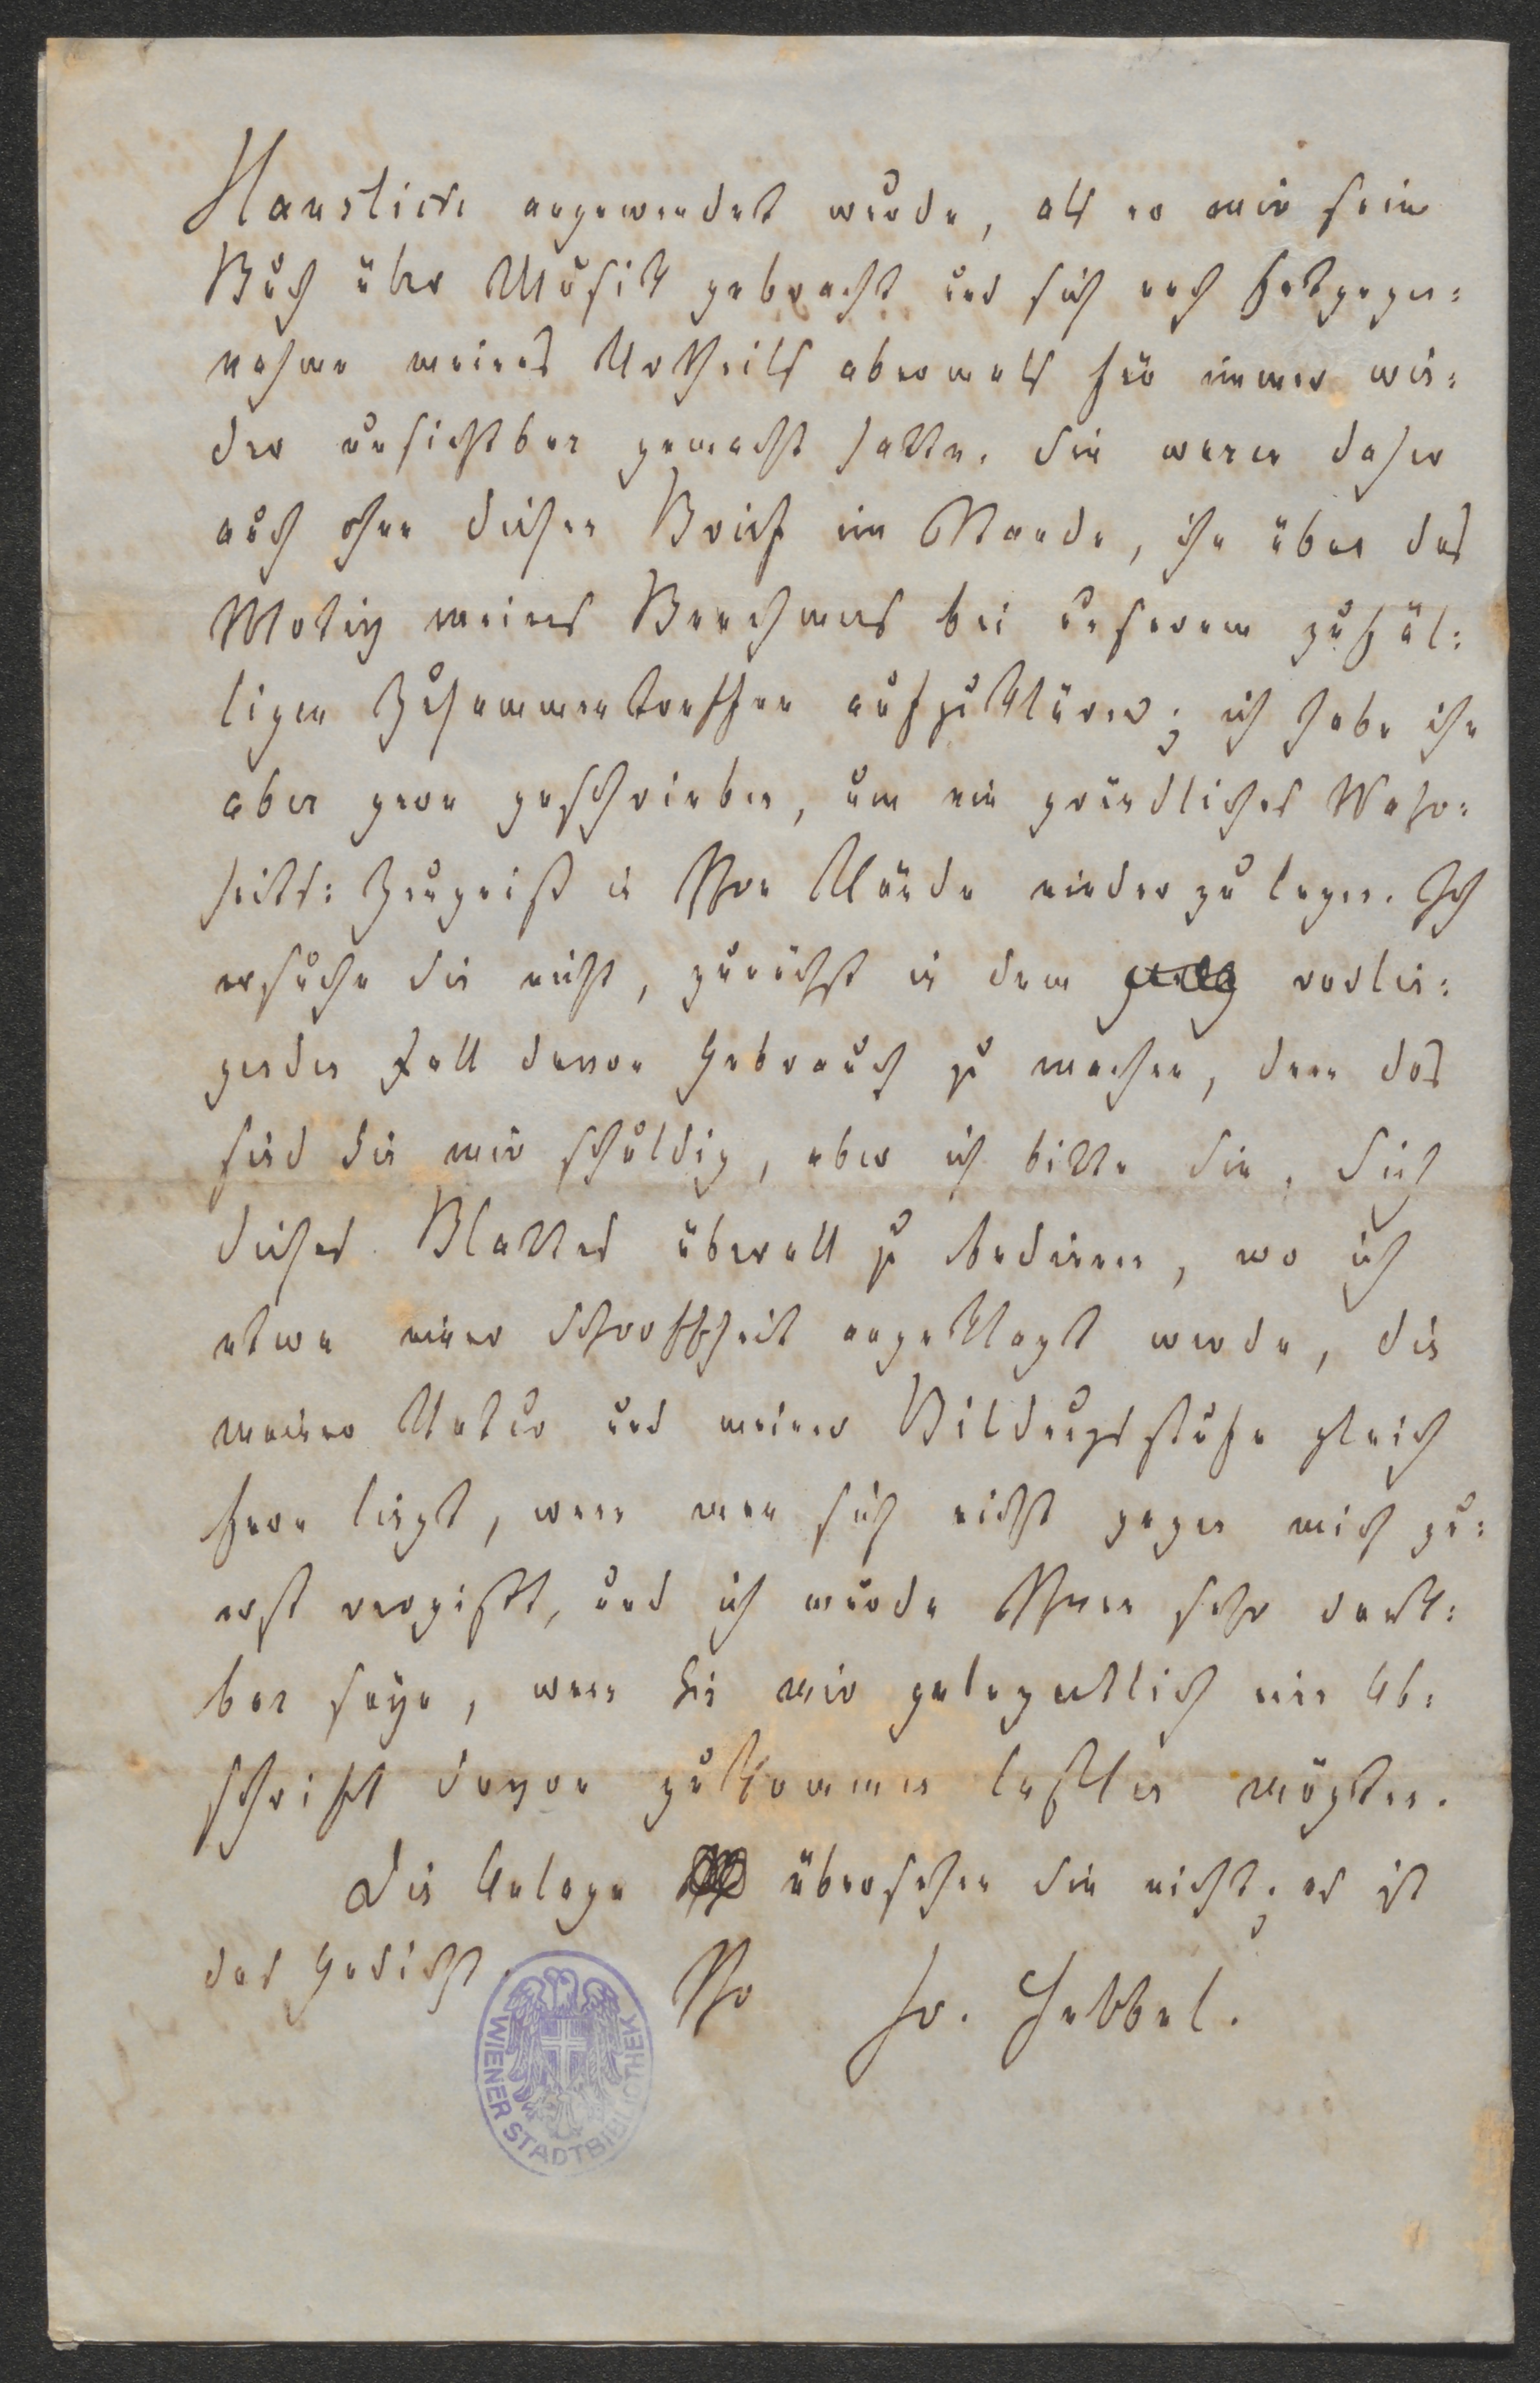 Hanslick angewendet wurde, als er mir sein
Buch über Musik gebracht und sich nach Entgegen=
nahme meines Urtheils abermals für immer wie=
der unsichtbar gemacht hatte. Sie waren daher
auch ohne diesen Brief im Stande, ihn über das
Motiv meines Benehmens bei unserem zufäl=
ligen Zusammentreffen aufzuklären; ich habe ihn
aber gern geschrieben, um ein gründliches Wahr=
heits=Zeugniß in Ihre Hände nieder zu legen. Ich
ersuche Sie nicht, zunächst in dem vorlie=
genden Fall davon Gebrauch zu machen, denn das
sind Sie mir schuldig, aber ich bitte Sie, Sich
dieses Blattes überall zu bedienen, wo ich
etwa einer Schroffheit angeklagt werde, die
meiner Natur und meiner Bildungsstufe gleich
fern liegt, wenn man sich nicht gegen mich zu=
erst vergißt, und ich würde Ihnen sehr dank=
bar seyn, wenn Sie mir gelegentlich eine Ab=
schrift davon zukommen laßen mögten.
Die Anlage übersehen Sie nicht; es ist
das Gedicht.
Ihr Fr. Hebbel.
WIENER STADTBIBLIOTHEK